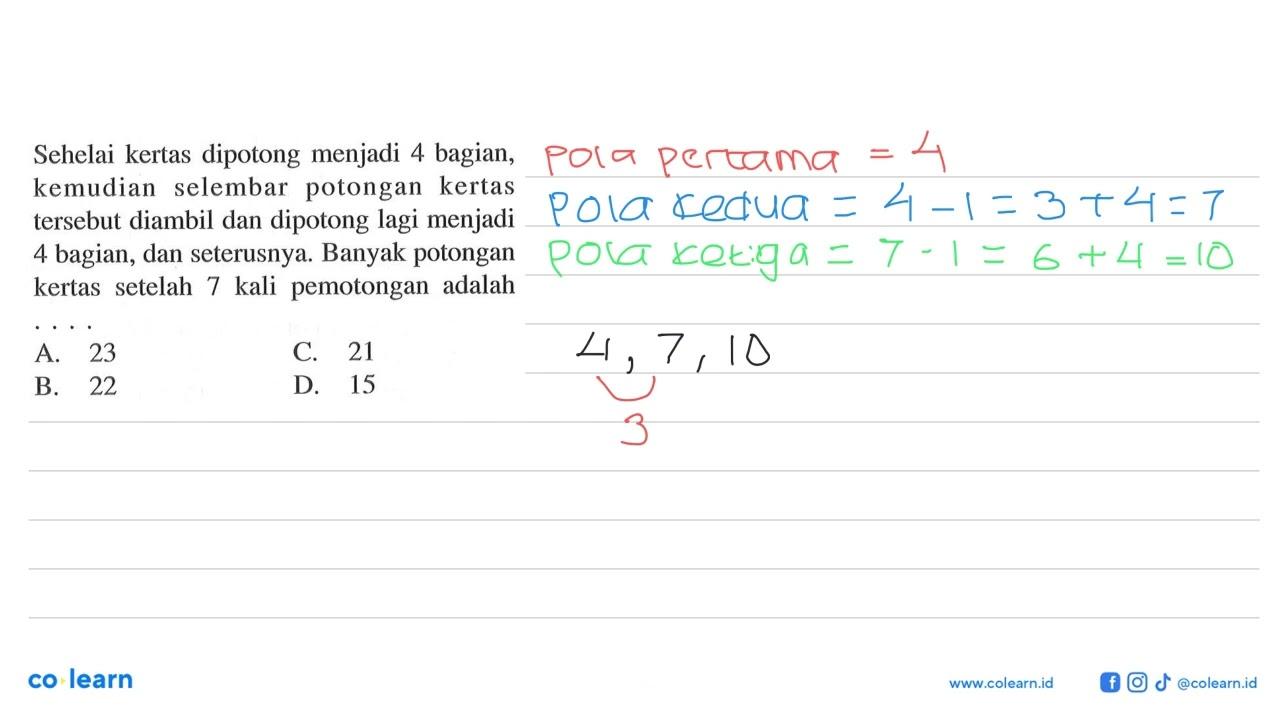 Sehelai kertas dipotong menjadi 4 bagian,
kemudian selembar potongan kertas
tersebut diambil dan dipotong lagi menjadi
4 bagian, dan seterusnya. Banyak potongan
kertas setelah 7 kali pemotongan adalah
. . . .
A. 23 C. 21
B. 22 D. 15
Pola pertama = 4
Pola kedua = 4 - 1 = 3 + 4 = 7
Pola ketiga = 7 - 1 = 6 + 4 = 10
4, 7, 10
3
co learn
www.colearn.id @colearn.id